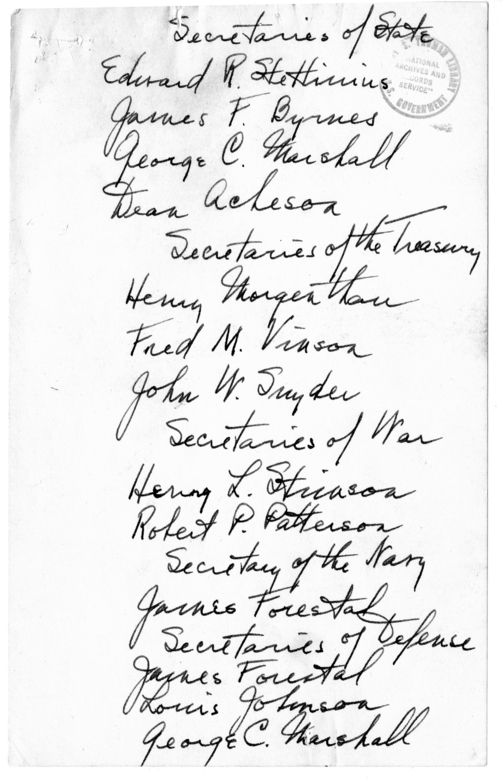 Secretaries of State
S. TRUMAN LIBRARY
"NATIONAL
ARCHIVES AND
RECORDS
SERVICE"
U.S. GOVERNMENT
Edward R. Stettinius
James F. Byrnes
George C. Marshall
Dean Acheson
Secretaries of the Treasury
Henry Morgenthau
Fred M. Vinson
John W. Snyder
Secretaries of War
Henry L. Stimson
Robert P. Patterson
Secretary of the Navy
James Forestal
Secretaries of Defense
James Forestal
Louis Johnson
George C. Marshall